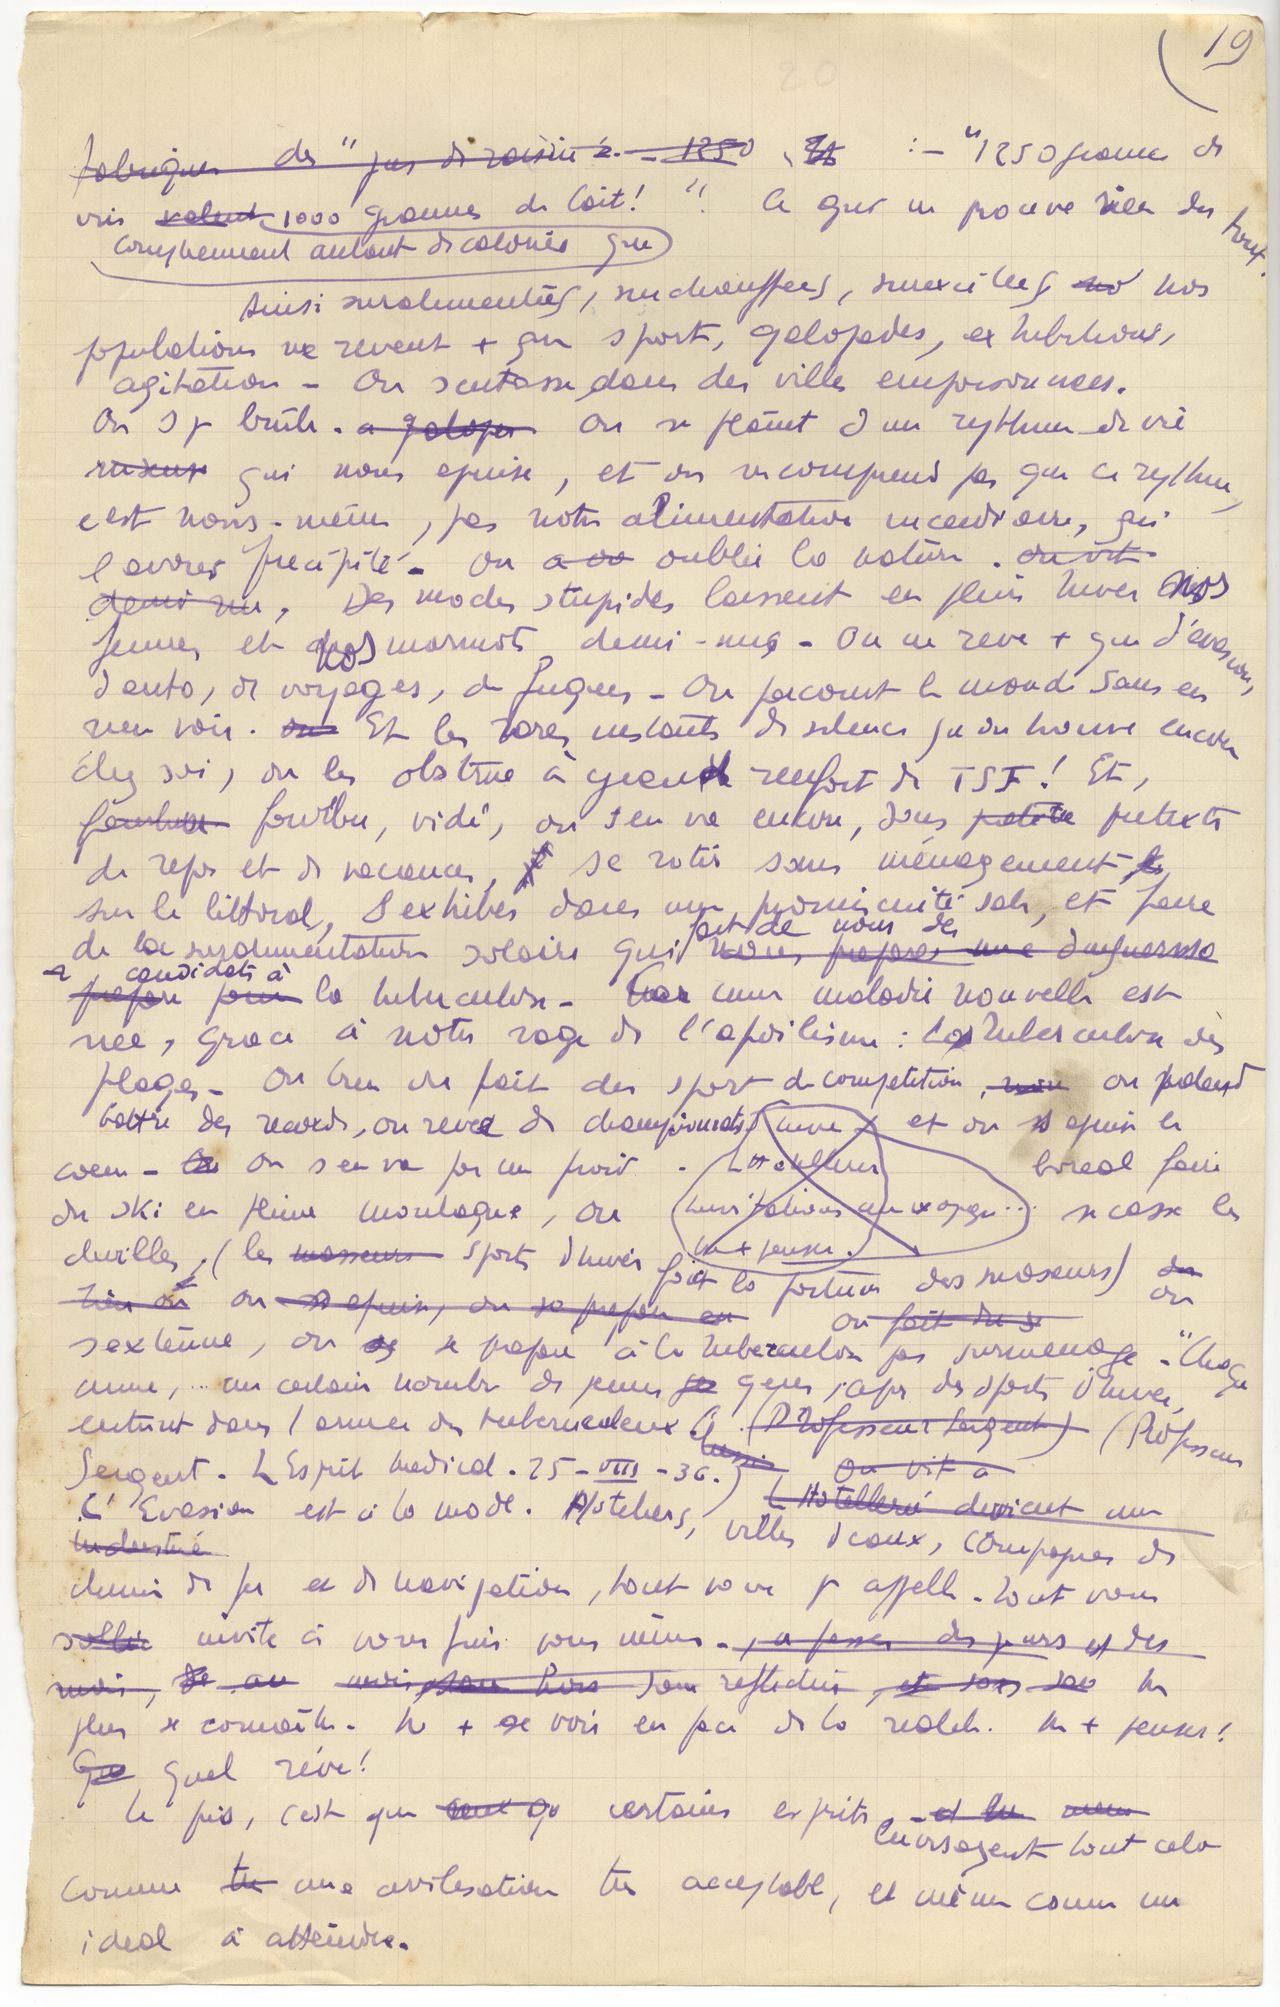 19
fabriques de "jus de raisiné - 1250 :- "1250 grammes de
vin valent 1000 grammes de lait! ". Ce qui ne prouve rien du tout.
comprennent autant de calories que
Ainsi suralimentées, surchauffées, surexcitées nos
populations ne revent + que sport, galopades, exhibitions,
agitation - On s'entasse dans des villes empoisonnées.
On s'y brûle. a galoper On se plaint d'un rythme de vie
qui nous epuise, et on ne comprend pas que ce rythme,
c'est nous-même, par notre alimentation incendiaire, qui
l'avons precipité - On a oublié la nature. on vit
demi nu, Des modes stupides laissent en plein hiver nos
femmes et nos marmots demi-nus - On ne reve + que d'évasions,
d'auto, de voyages, de fugues - On parcourt le monde sans en
rien voir. Et les rares instants de silence qu'on trouve encore
chez soi, on les obstrue à grand renfort de TSF! Et,
fourbu, vidé, on s'en va encore, sous pretexte
de repos et de vacances, se rotir sans ménagement
sur le littoral, s'exhiber dans une promiscuité sale, et faire
de la suralimentation solaire qui nous prepare une
fait de nous des
candidats à
prepare pour la tuberculose - Car une maladie nouvelle est
née, grace à notre rage de l'apoilisme : la tuberculose des
plages - Ou bien on fait du sport de competition, on pretend
battre des records, on reve de championnats, et on s'epuise le
coeur - On s'en va par un froid boreal faire
L'Hotellerie
du ski en pleine montagne, on se casse les
invitations au voyage...
ne + penser.
chevilles, (les masseurs sports d'hiver font la fortune des masseurs) on
on s'epuise, on se prepare on fait du s
s'extenue, on se prepare à la tuberculose par surmenage - "Chaque
annee, un certain nombre de jeunes gens, apres des sports d'hiver,
entrent dans l'armee des tuberculeux" (Professeur Sergent) (Professeur
Sergent - L'Esprit medical - 25 - VIII - 36.) On vit a
L'Evasion est à la mode. Hoteliers, L'Hotellerie devient une
industrie villes d'eaux, Compagnies de
chemin de fer et de navigation, tout vous y appelle - tout vous
invite à vous fuir vous même - , a passer des jours et des
mois, sans reflechir, et sans Ne
plus se connaître. Ne + se voir en face de la realité. Ne + penser!
Quel rêve!
Le pis, c'est que certains esprits
envisagent tout cela
comme une civilisation très acceptable, et même comme un
ideal à atteindre.